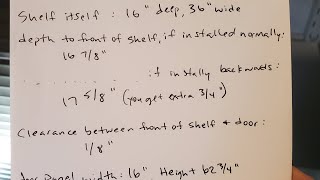 Shelf itself : 16" deep, 36" wide
depth to front of shelf, if installed normally:
16 7/8"
if install backwards:
17 5/8" (you get extra 3/4")
Clearance between front of shelf & door:
1/8"
Panel width: 16" Height 62 3/4"